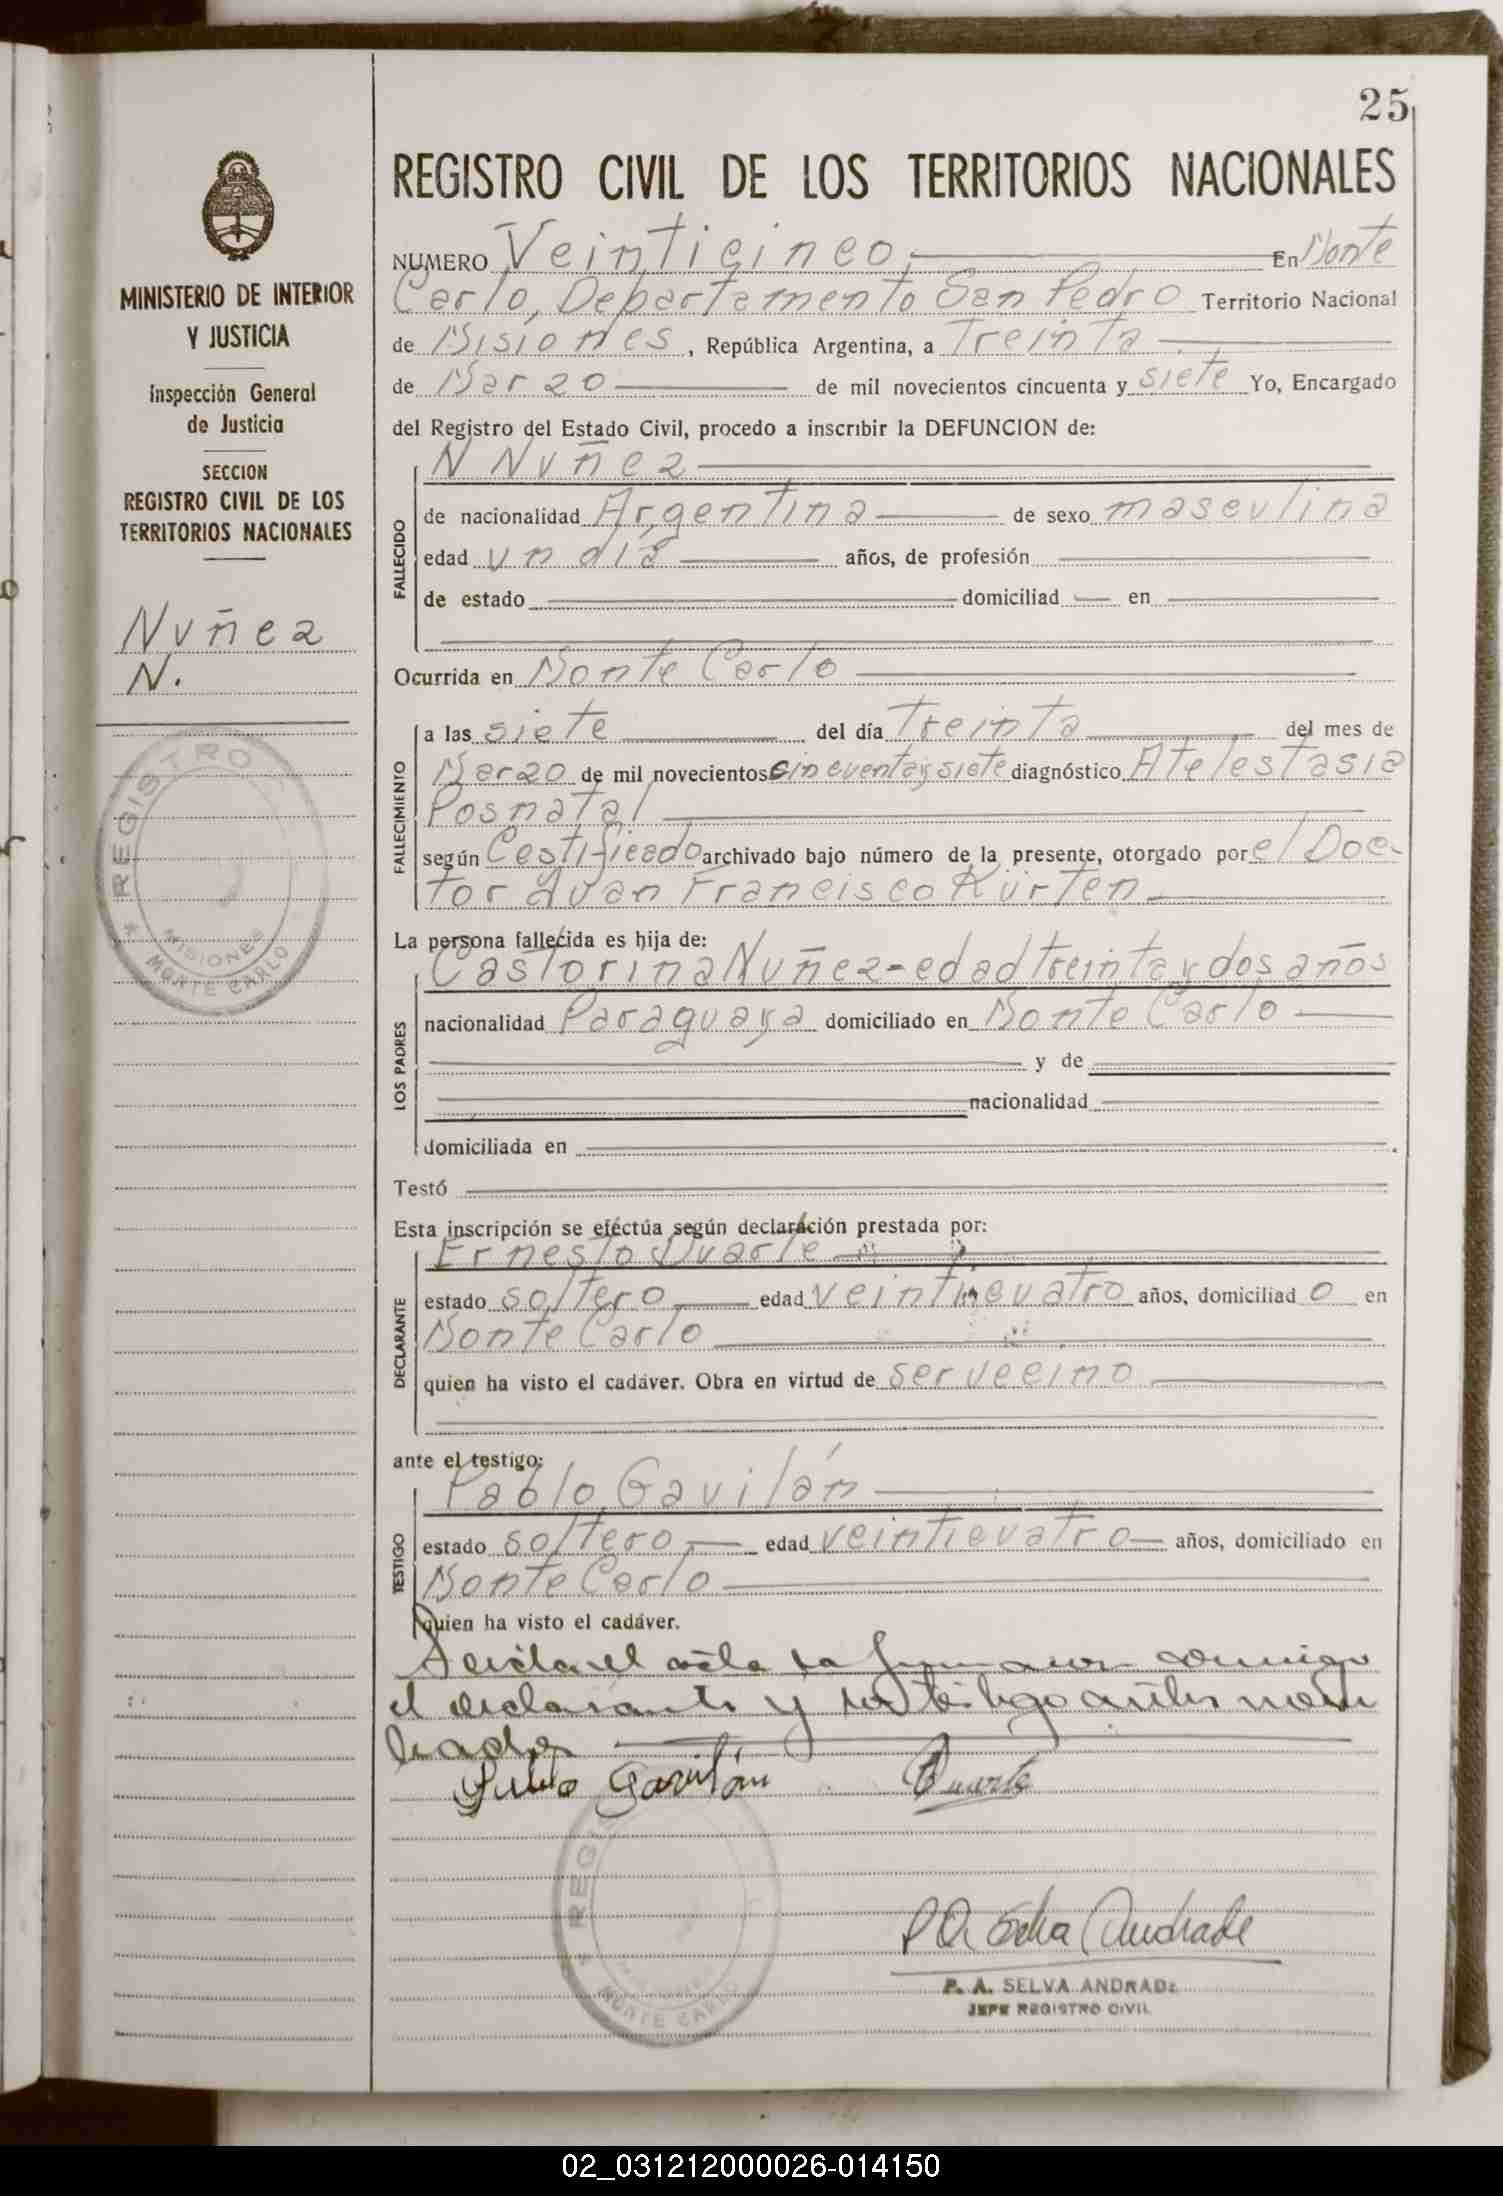 25
REGISTRO CIVIL DE LOS TERRITORIOS NACIONALES
MINISTERIO DE INTERIOR
Y JUSTICIA
Inspección General
de Justicia
SECCION
REGISTRO CIVIL DE LOS
TERRITORIOS NACIONALES
Nuñez
N.
REGISTRO
MISIONES
MONTE CARLO
NUMERO Veinticinco En Monte
Carlo, Departamento San Pedro Territorio Nacional
de Misiones, República Argentina, a Treinta
de Marzo de mil novecientos cincuenta y siete Yo, Encargado
del Registro del Estado Civil, procedo a inscribir la DEFUNCION de:
N Nuñez
FALLECIDO
de nacionalidad Argentina de sexo masculina
edad un día años, de profesión
de estado domiciliad en
Ocurrida en Monte Carlo
FALLECIMIENTO
a las siete del día Treinta del mes de
Marzo de mil novecientos cincuenta y siete diagnóstico Atelestasia
Posnatal
según Cestificado archivado bajo número de la presente, otorgado por el Doc-
tor Juan Francisco Kürten
La persona fallecida es hija de:
LOS PADRES
Castorina Nuñez - edad treinta y dos años
nacionalidad Paraguaya domiciliado en Monte Carlo
y de
nacionalidad
domiciliada en
Testó
Esta inscripción se efectúa según declaración prestada por:
DECLARANTE
Ernesto Duarte
estado soltero edad veinticuatro años, domiciliado en
Monte Carlo
quien ha visto el cadáver. Obra en virtud de ser vecino
ante el testigo:
TESTIGO
Pablo Gavilán
estado soltero edad veinticuatro años, domiciliado en
Monte Carlo
quien ha visto el cadáver.
Leida el acta la firman conmigo
el declarante y el testigo antes nom
brados
Pablo Gavilán Duarte
REGIS
MONTE CARLO
P A Selva Andrade
P. A. SELVA ANDRADE
JEFE REGISTRO CIVIL
02_031212000026-014150